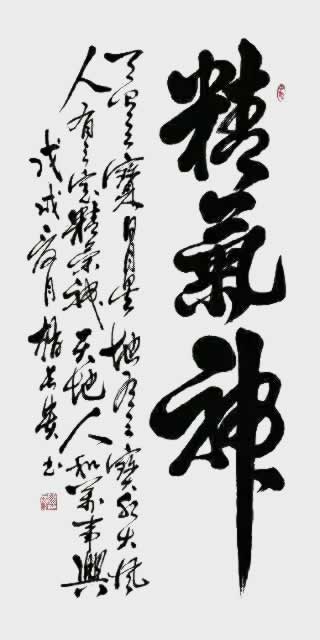 精氣神
天有三寶日月星地有三寶水火風
人有三宝精氣神天地人和萬事興
戊戌夏月楊书